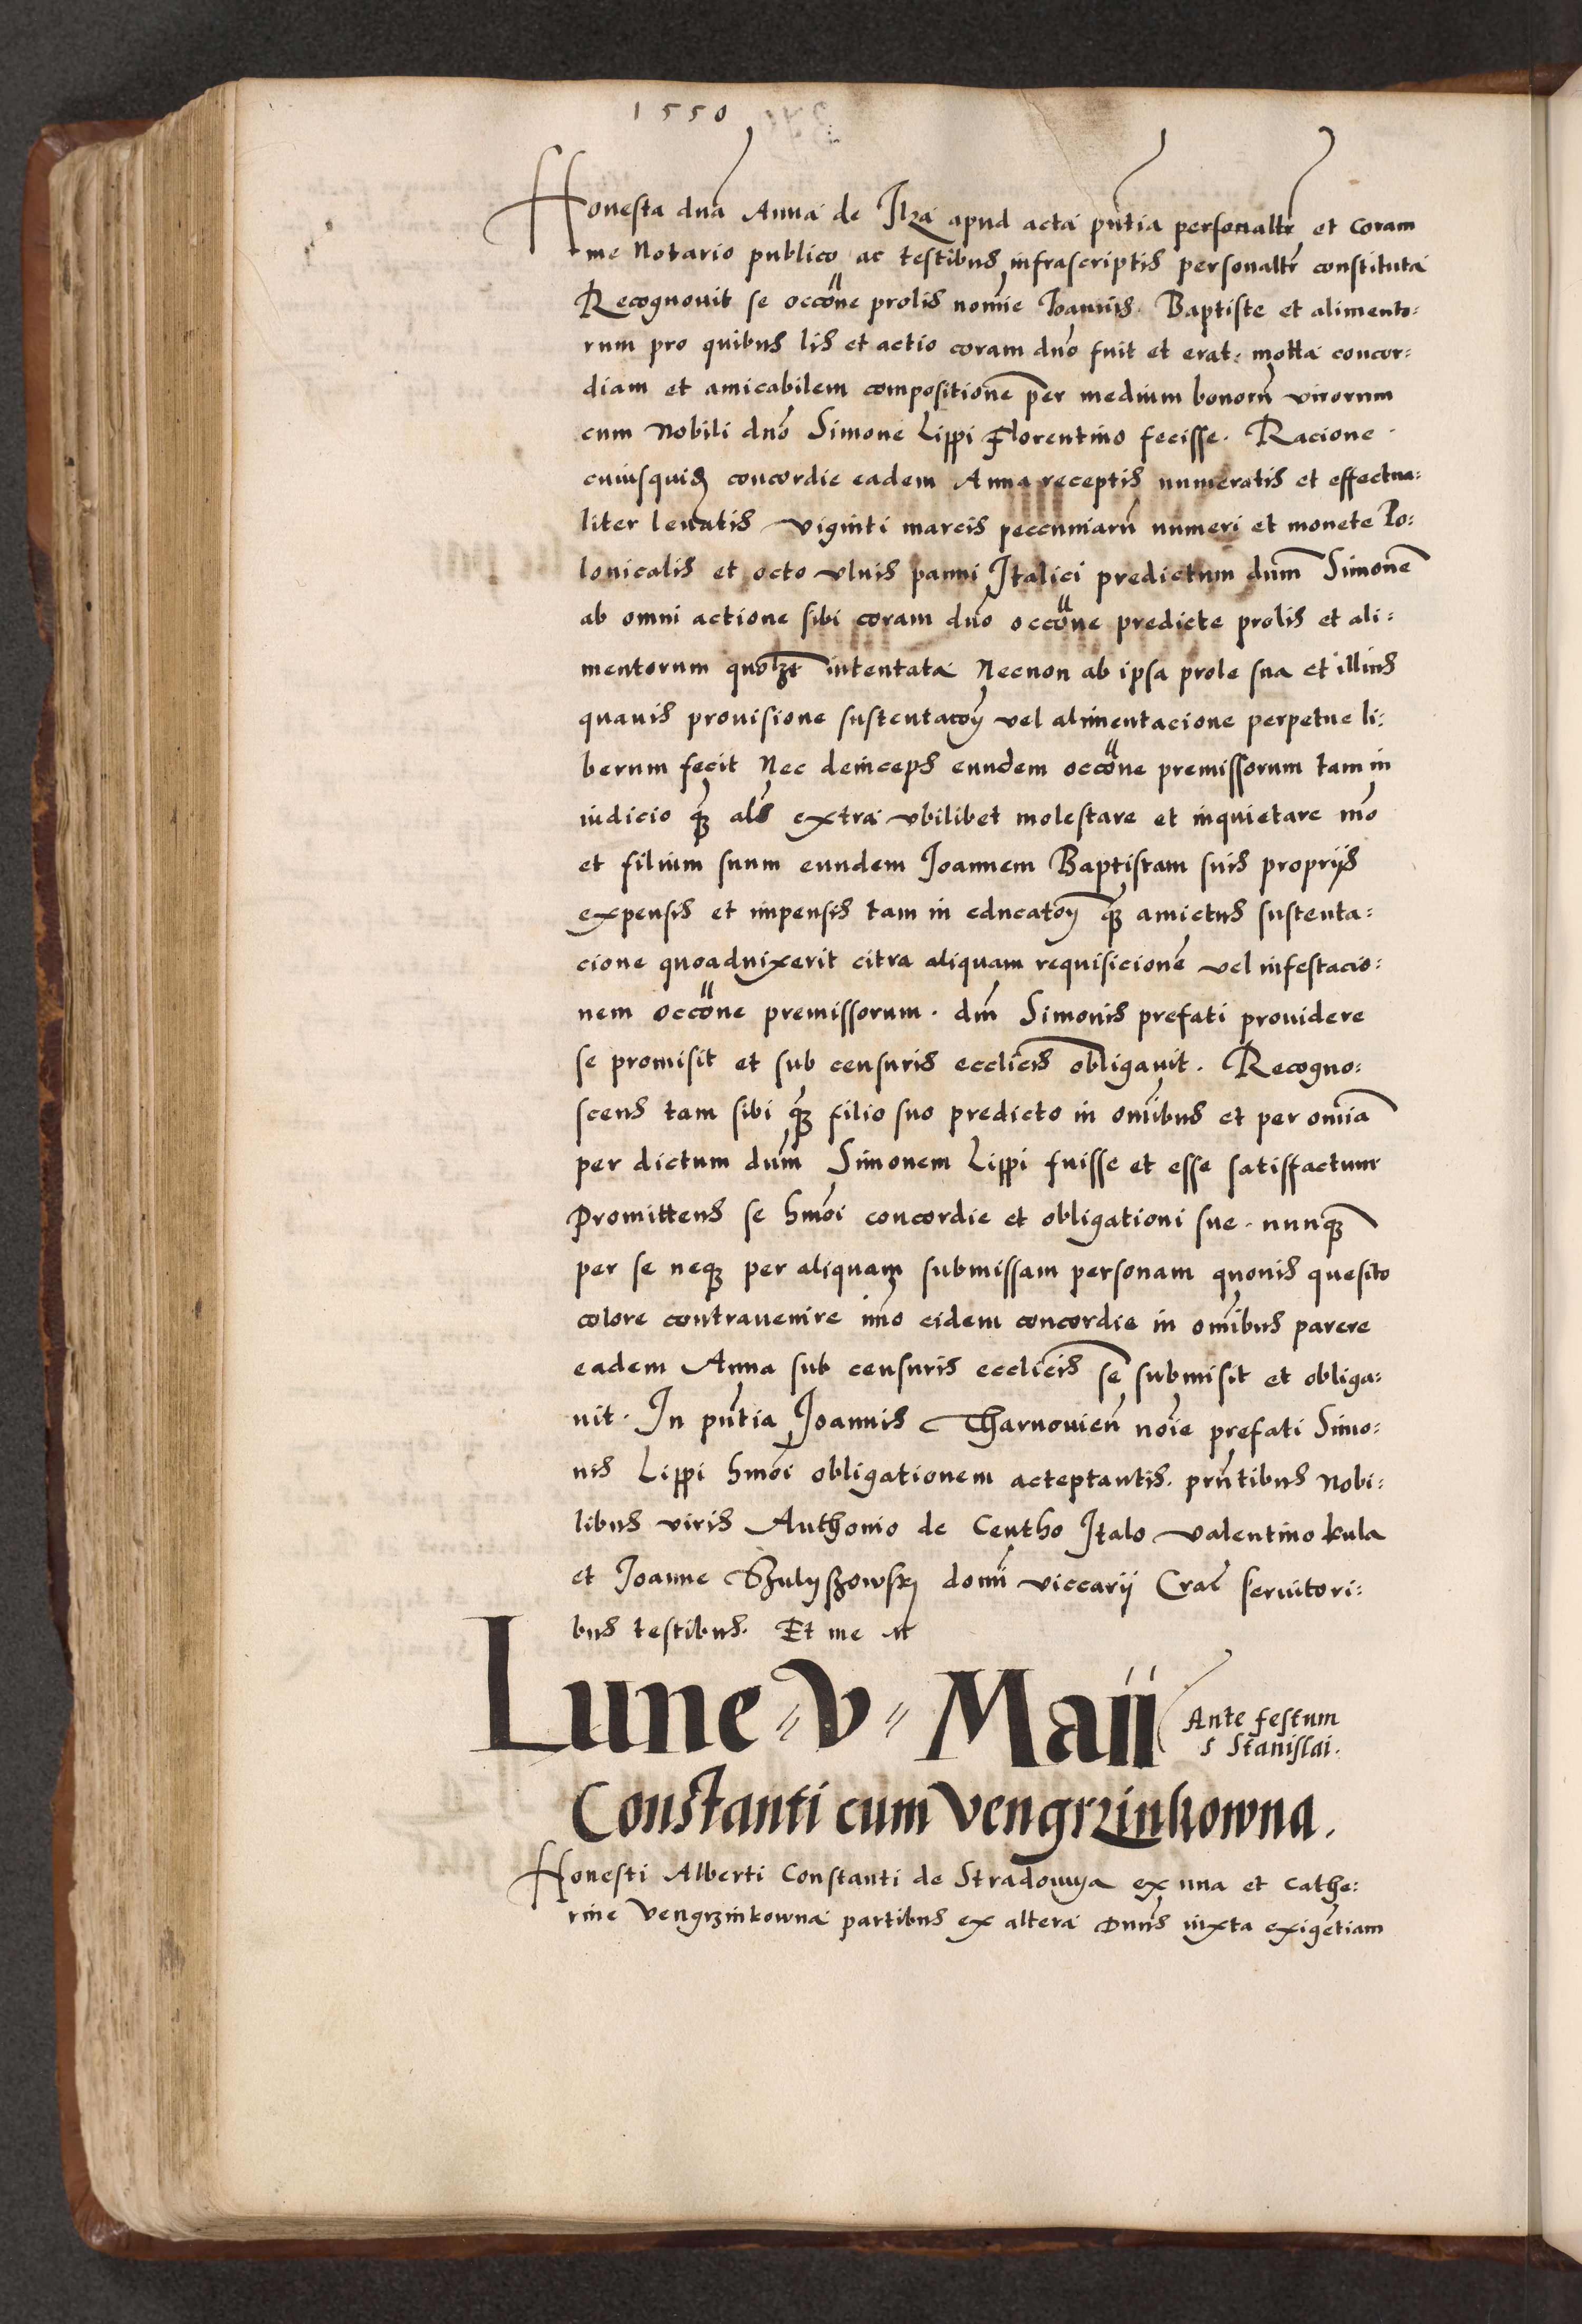 1550
Honesta dna Anna de Ilza apud acta pntia personaltr et coram
me Notario publico ac testibus infrascriptis personaltr constituta
Recognouit se occone prolis nomie Joannis Baptiste et alimento:
rum pro quibus lis et actio coram dno fuit et erat mota concor:
diam et amicabilem compositione per medium bonoru virorum
cum Nobili dno Simone Lippi Florentino fecisse. Racione
cuiusquid concordie eadem Anna receptis numeratis et effectua:
liter leuatis viginti marcis peccuniaru numeri et monete Po:
lonicalis et octo vlnis panni Italici predictum dnm Simone
ab omni actione sibi coram dno occone predicte prolis et ali:
mentorum quolzt intentata Necnon ab ipsa prole sua et illius
quauis prouisione sustentacoy vel alimentacione perpetue li:
berum fecit Nec deinceps eundem occone premissorum tam in
iudicio qz als extra vbilibet molestare et inquietare imo
et filium suum eundem Joannem Baptistam suis proprijs
expensis et impensis tam in educatoy qz amictus sustenta:
cione quoaduixerit citra aliquam requisicione vel infestacio:
nem occone premissorum. dni Simonis prefati prouidere
se promisit et sub censuris ecclicis obligauit. Recogno:
scens tam sibi qz filio suo predicto in omibus et per omia
per dictum dnm Simonem Lippi fuisse et esse satisfactum
Promittens se hmoi concordie et obligationi sue. nunqz
per se neqz per aliquam submissam personam quouis quesito
colore contrauenire imo eidem concordie in omibus parere
eadem Anna sub censuris ecclicis se submisit et obliga:
uit. In pntia Joannis Tharnouien noie prefati Simo:
nis Lippi hmoi obligationem acteptantis. pntibus Nobi:
libus viris Anthonio de Centho Italo Valentino kula
et Joanne Szulyszowsky domi viccarij Crac seruitori:
bus testibus. Et me Nt
Lune v Maii Ante festum
s Stanislai.
Constanti cum Vengrzinkowna.
Honesti Alberti Constanti de Stradomya ex una et Cathe:
rine Vengrzinkowna partibus ex altera Dnus iuxta exigetiam